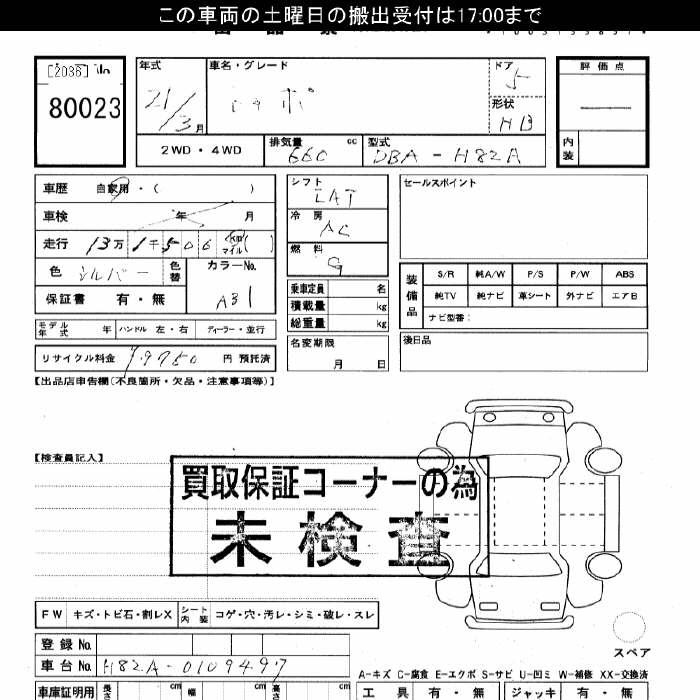 この車両の土曜日の搬出受付は17:00まで
[2036]
80023
年式
21/3月
車名・グレード
ドア
5
形状
HB
評価点
内装
2WD・4WD
排気量
660 cc
型式
DBA-H82A
車歴 自家用・( )
車検 年 月
走行 13万 1千 506 km マイル ( )
色 シルバー 色替
カラーNo.
A31
保証書 有・無
モデル年式 年 ハンドル 左・右 ディーラー・並行
リサイクル料金 円 預託済
シフト
冷房
AC
燃料
G
乗車定員 名
積載量 kg
総重量 kg
名変期限
月 日
セールスポイント
装備品
S/R 純A/W P/S P/W ABS
純TV 純ナビ 革シート 外ナビ エアB
ナビ型番:
後日品
【出品店申告欄(不良箇所・欠品・注意事項等)】
【検査員記入】
買取保証コーナーの為
未検査
FW キズ・トビ石・割レX シート内装 コゲ・穴・汚レ・シミ・破レ・スレ
スペア
登録No.
車台No. H82A-0109497
A-キズ C-腐食 E-エクボ S-サビ U-凹ミ W-補修 XX-交換済
車庫証明用 長さ cm 幅 cm 高さ cm
工具 有・無 ジャッキ 有・無